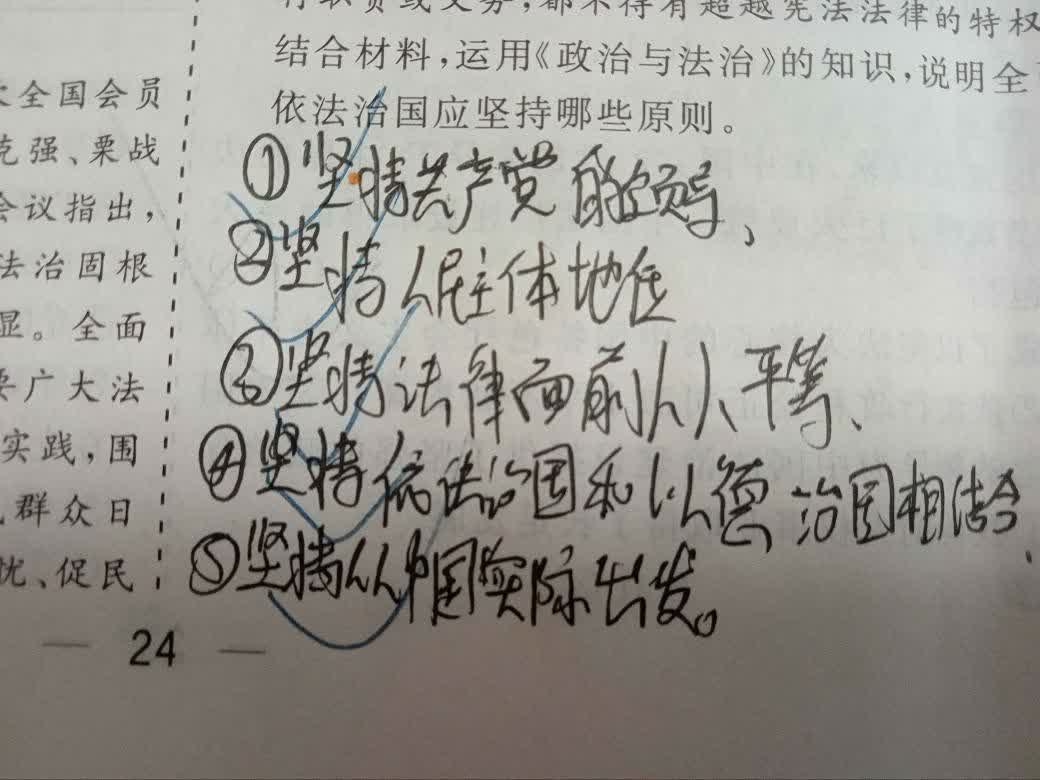 大全国会员
克强、栗战
会议指出，
法治固根
显。全面
要广大法
实践，围
群众日
忧、促民
24
有职责或义务，都不得有超越宪法法律的特权
结合材料，运用《政治与法治》的知识，说明全
依法治国应坚持哪些原则。
①坚持共产党的领导、
②坚持人民主体地位
③坚持法律面前人人平等、
④坚持依法治国和以德治国相结合、
⑤坚持从中国实际出发。